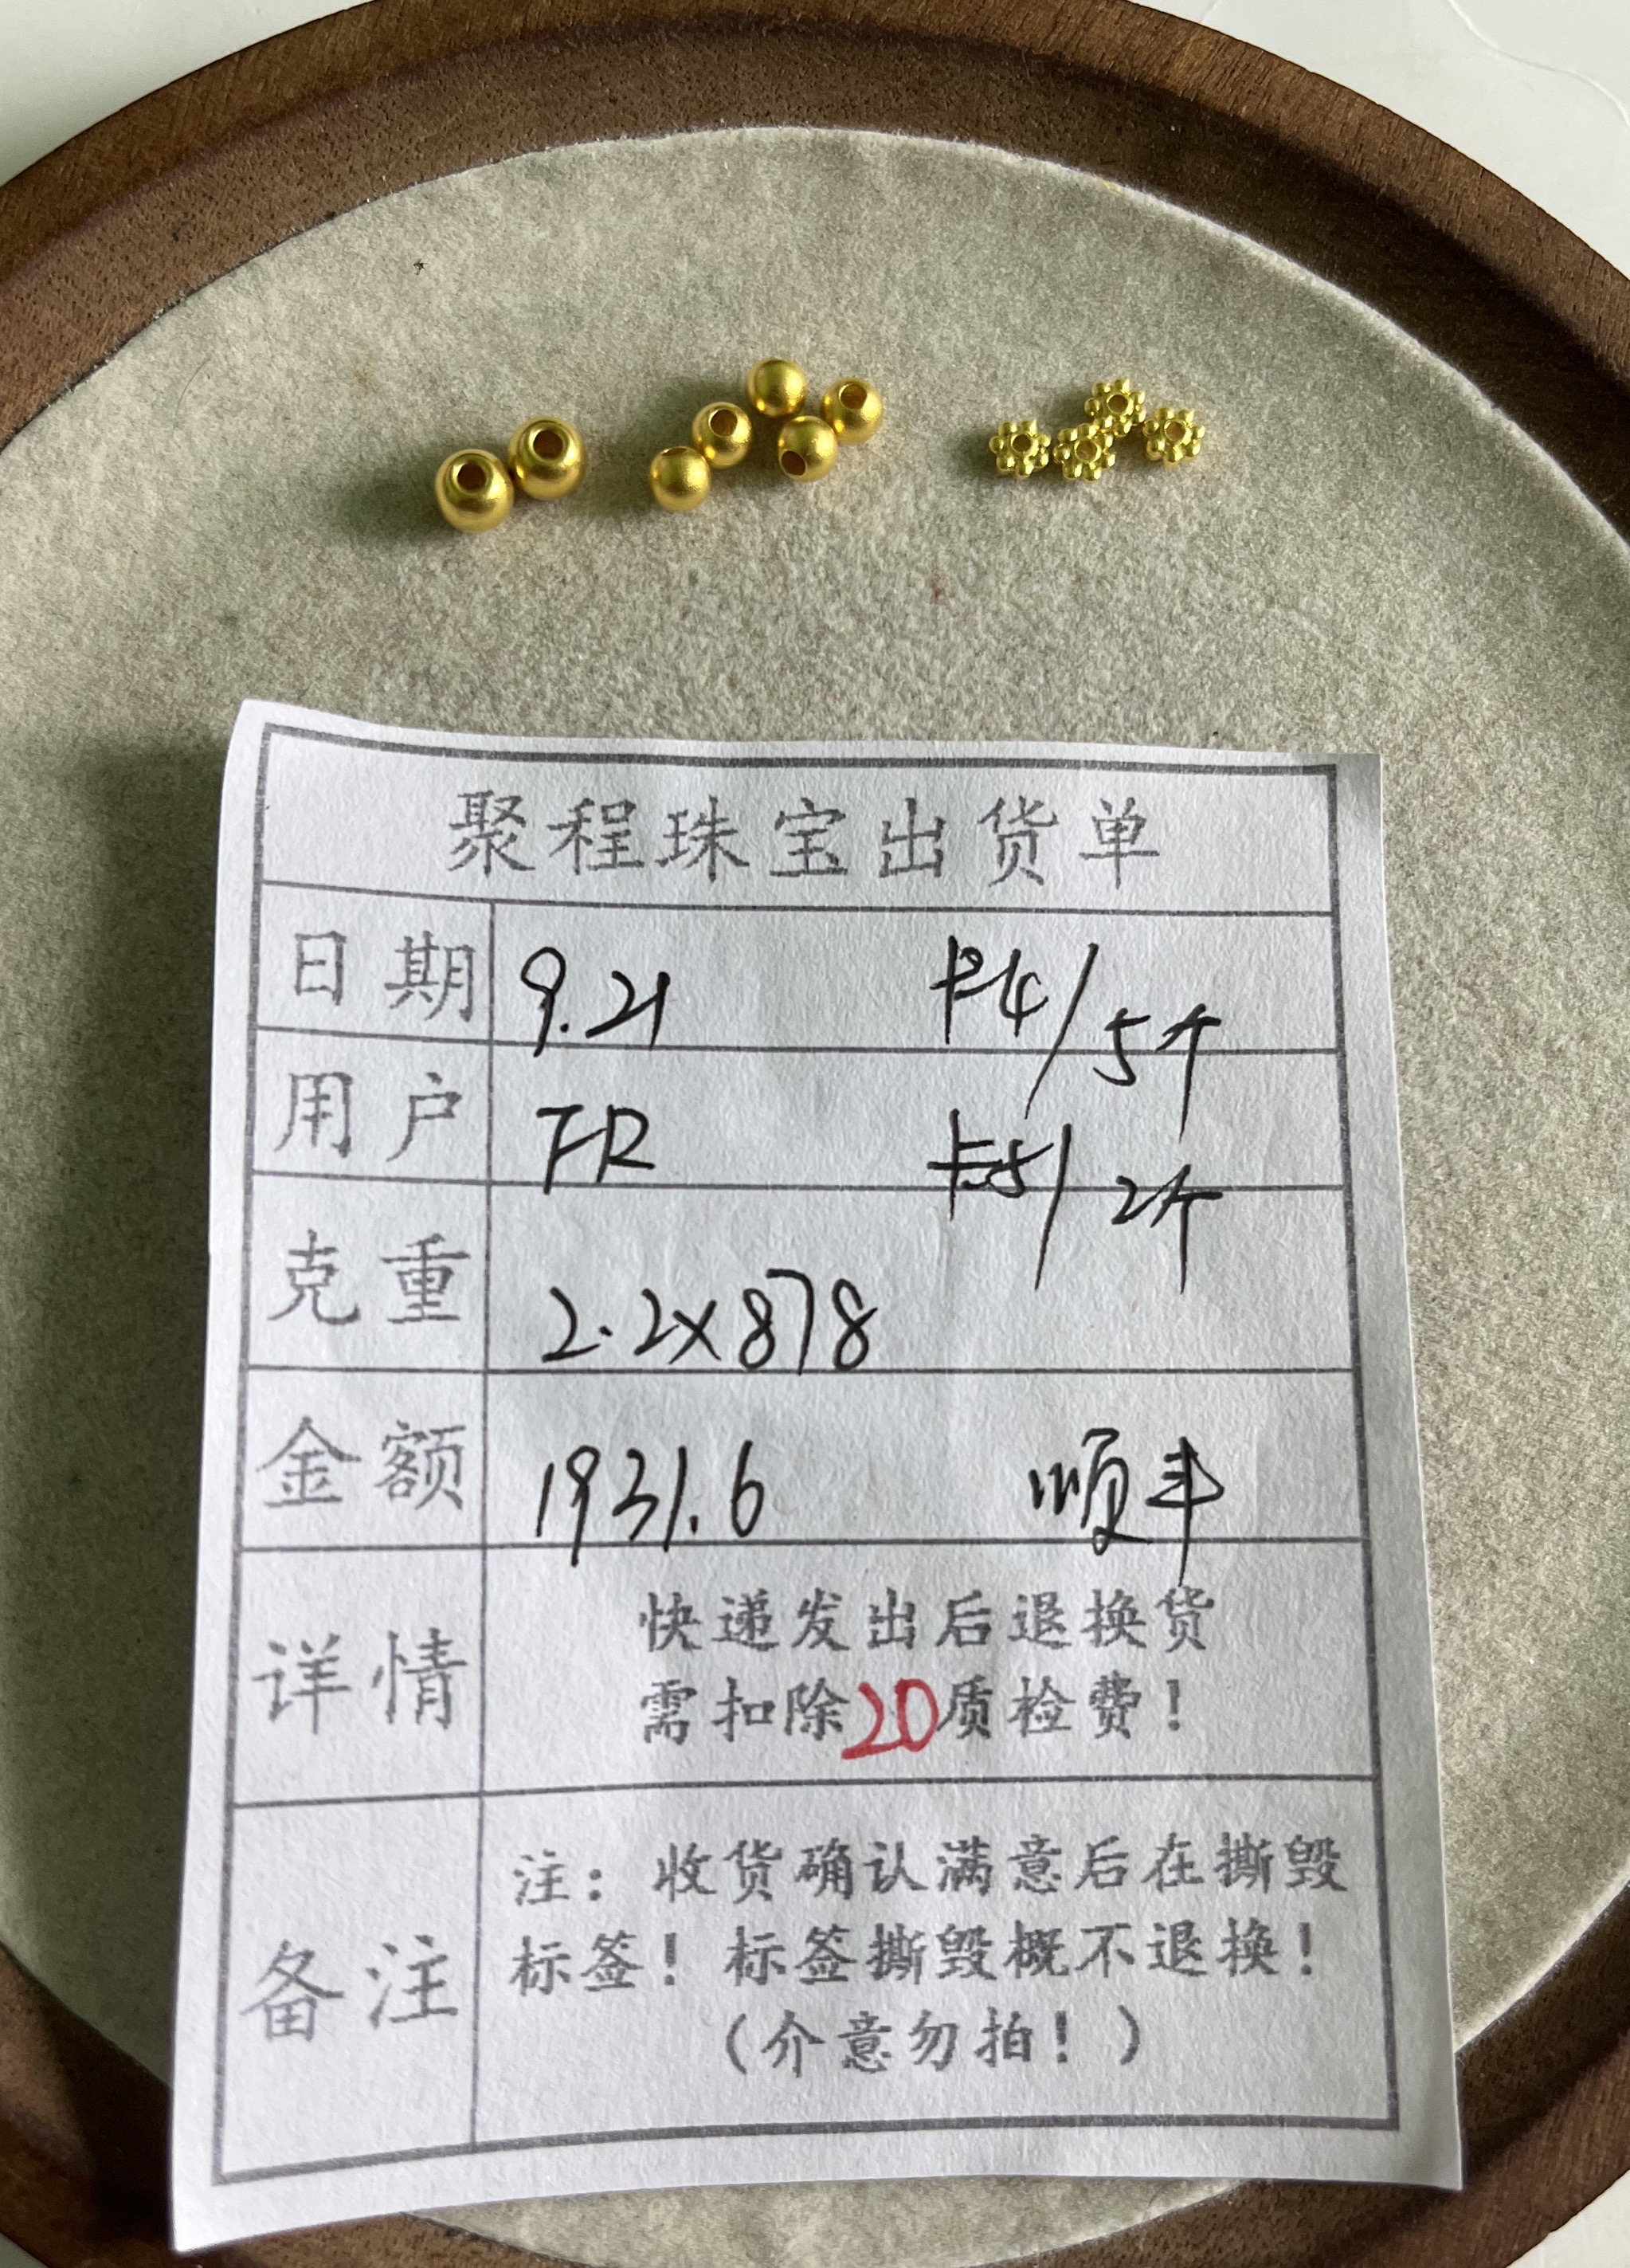 聚程珠宝出货单
日期 9.21 卡4/5个
用户 FR 卡5/2个
克重 2.2×878
金额 1931.6 顺丰
详情 快递发出后退换货
需扣除20质检费！
备注 注：收货确认满意后在撕毁
标签！标签撕毁概不退换！
（介意勿拍！）